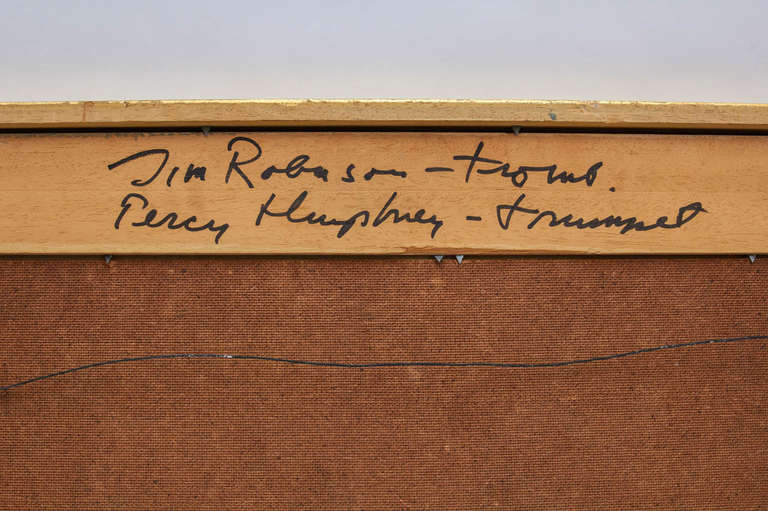 Jim Robinson - tromb.
Percy Humphrey - trumpet